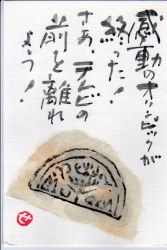 感動のオリンピックが
終った!
さあ、テレビの
前を離れ
よう!